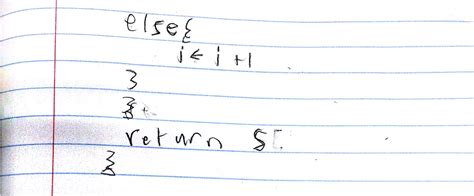 else{
j ← j + 1
}
}
return S[
}